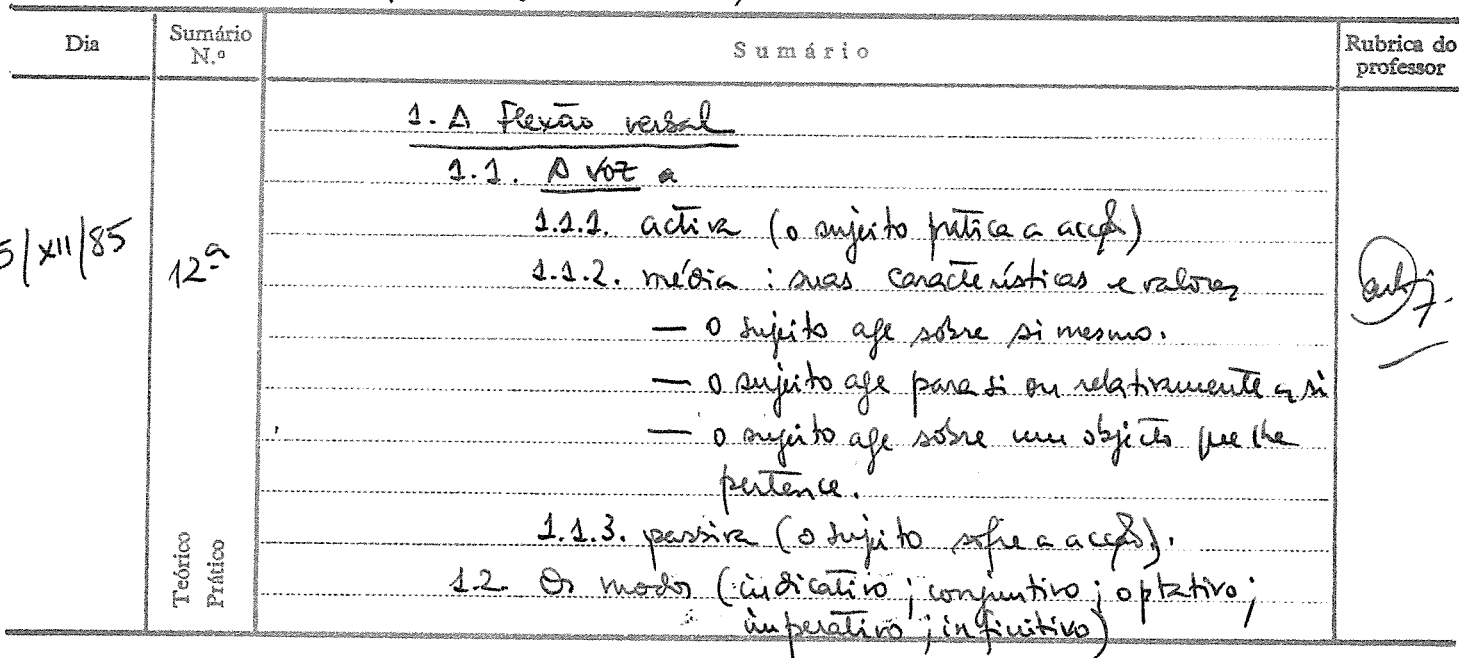 Dia
Sumário N.º
Sumário
Rubrica do professor
1. A flexão verbal
1.1. A voz
1.1.1. activa (o sujeito pratica a acção)
5/XII/85
12ª
1.1.2. média: suas características e valores
— o sujeito age sobre si mesmo.
— o sujeito age para si ou relativamente a si
— o sujeito age sobre um objecto que lhe
pertence.
1.1.3. passiva (o sujeito sofre a acção).
Teórico
Prático
1.2. Os modos (indicativo; conjuntivo; optativo;
imperativo; infinitivo)